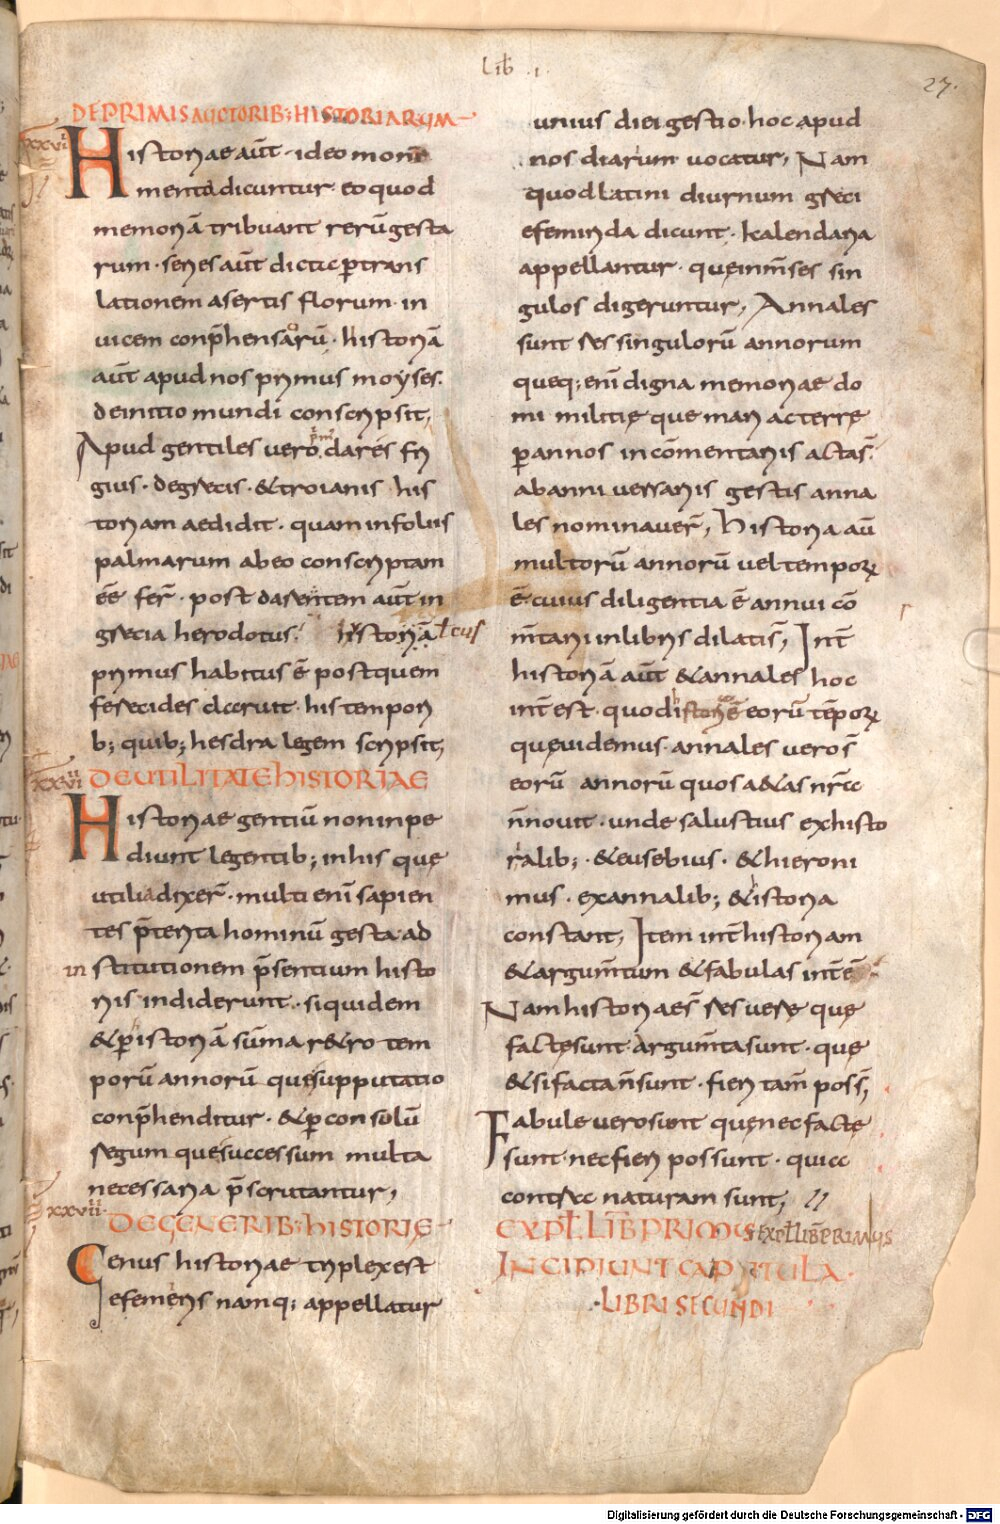 Lib̄ .i.
27.
DE PRIMIS AUCTORIB; HISTORIARUM
xxvi
Historiae aut̄ · ideo monu
menta dicuntur eo quod
memoriā tribuant rerū gesta
rum · series aūt dicta ꝑ trans
lationem a sertis florum · in
uicem conp̄hensarū · historiā
aūt apud nos primus moyses.
de initio mundi conscripsit;
Apud gentiles vero prim' dares fri
gius · de grecis · & troianis his
toriam aedidit · quam in foliis
palmarum ab eo conscriptam
eē̄ fer̄ · post daretem aūt in
grecia herodotus. historiā l cus
primus habitus ē postquem
ferecides claruit · his tempori
b; quib; hesdra legem scripsit;
xxvii
DE UTILITATE HISTORIAE
Historiae gentiū non inpe
diunt legentib; in his quę
utilia dixer̄ · multi enī sapien
tes p̄terita hominū gesta · ad
in stitutionem p̄sentium histo
riis indiderunt · siquidem
& ꝑ istoriā sūma retro tem
porū annorū que supputatio
conp̄henditur · & ꝑ consolū
regum que successum multa
necessaria p̄scrutantur;
xxviii
DE GENERIB; HISTORIĘ
Genus historiae triplex est
efemeris namq; appellatur
unius diei gestio · hoc apud
nos diarium uocatur, Nam
quod latini diurnum greci
efemirida dicunt · kalendaria
appellantur · quę in m̄ses sin
gulos digeruntur, Annales
sunt res singulorū annorum
queq; enī digna memoriae do
mi militię que mari ac terrę
ꝑ annos in cōmentariis acta s̄.
ab anni uersariis gestis anna
les nominauer̄, Historia aū
multorū annorū uel temporꝝ
ē · cuius diligentia ē annui cō
m̄tarii in libris dilati s̄, Int̄
historiā aūt & annales hoc
int̄est · quod istorię ē eorū tēporꝝ
quę uidemus · annales uero s̄
eorū annorū quos aetas nr̄a
n̄ nouit · unde salustius ex histo
ralib; · & eusebius · & hieroni
mus · ex annalib; & istoria
constant, Item int̄ historiam
& argum̄tum & fabulas int̄ē
Nam historiae s̄ res uere quę
factę sunt · argum̄ta sunt · quę
& si facta n̄ sunt · fieri tam̄ poss̄,
Fabule uero sunt quę nec factę
sunt · nec fieri possunt · quia
contra naturam sunt,
EXPL̄ LIB̄ PRIMUS EXPL̄ LIB̄ PRIMUS
INCIPIUNT CAPITULA
LIBRI SECUNDI
Digitalisierung gefördert durch die Deutsche Forschungsgemeinschaft - DFG